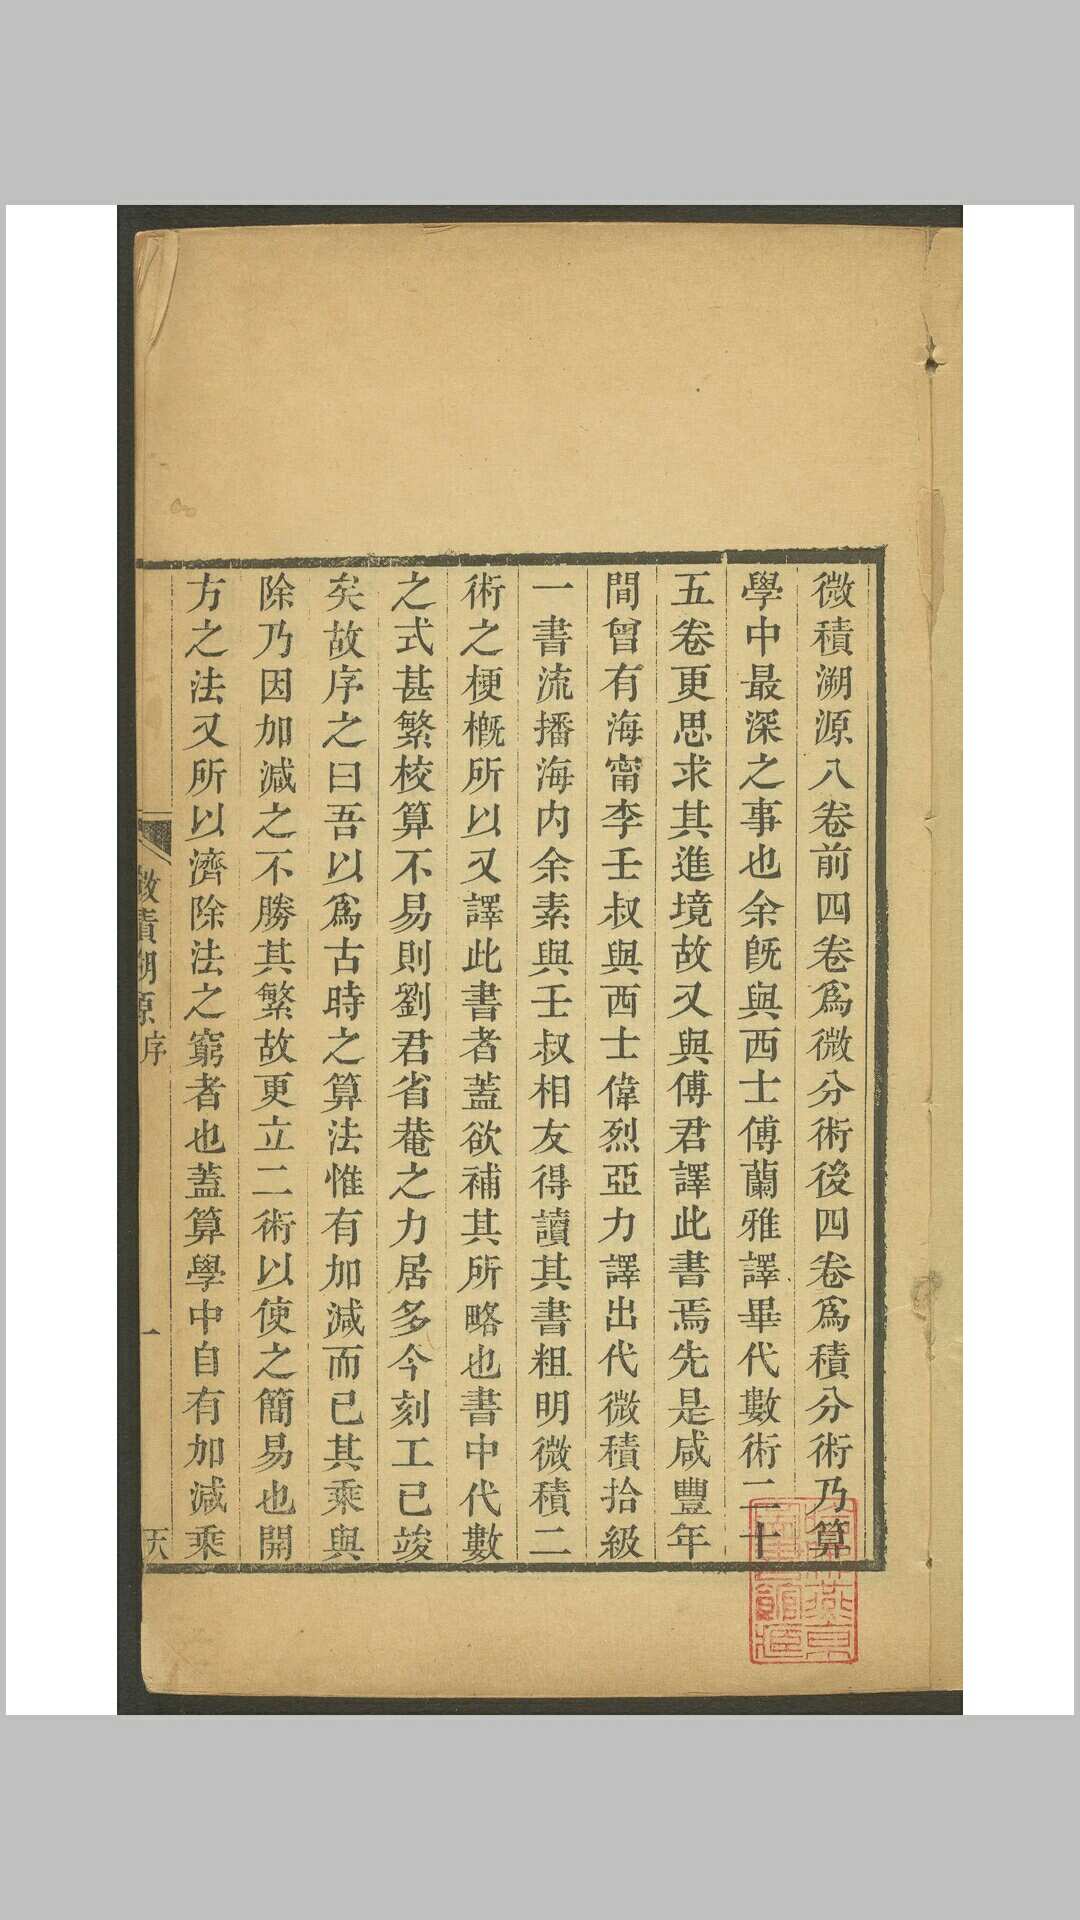 微積溯源八卷前四卷爲微分術後四卷爲積分術乃算
學中最深之事也余旣與西士傅蘭雅譯畢代數術二十
五卷更思求其進境故又與傅君譯此書焉先是咸豐年
間曾有海甯李壬叔與西士偉烈亞力譯出代微積拾級
一書流播海內余素與壬叔相友得讀其書粗明微積二
術之梗槪所以又譯此書者蓋欲補其所略也書中代數
之式甚繁校算不易則劉君省菴之力居多今刻工已竣
矣故序之曰吾以爲古時之算法惟有加減而已其乘與
除乃因加減之不勝其繁故更立二術以使之簡易也開
方之法又所以濟除法之窮者也蓋算學中自有加減乘
微積溯原 序
一
天